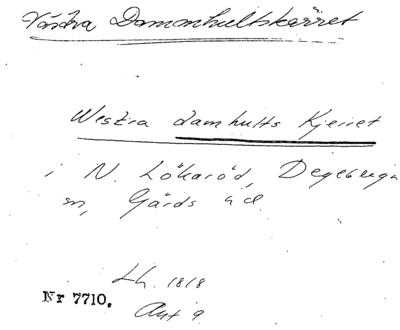 Västra Dammhultskärret
Westra damhults Kjerret
i N. Lökaröd, Degeberga
sn, Gärds hd.
Lh. 1818
Nr 7710.
Akt 9